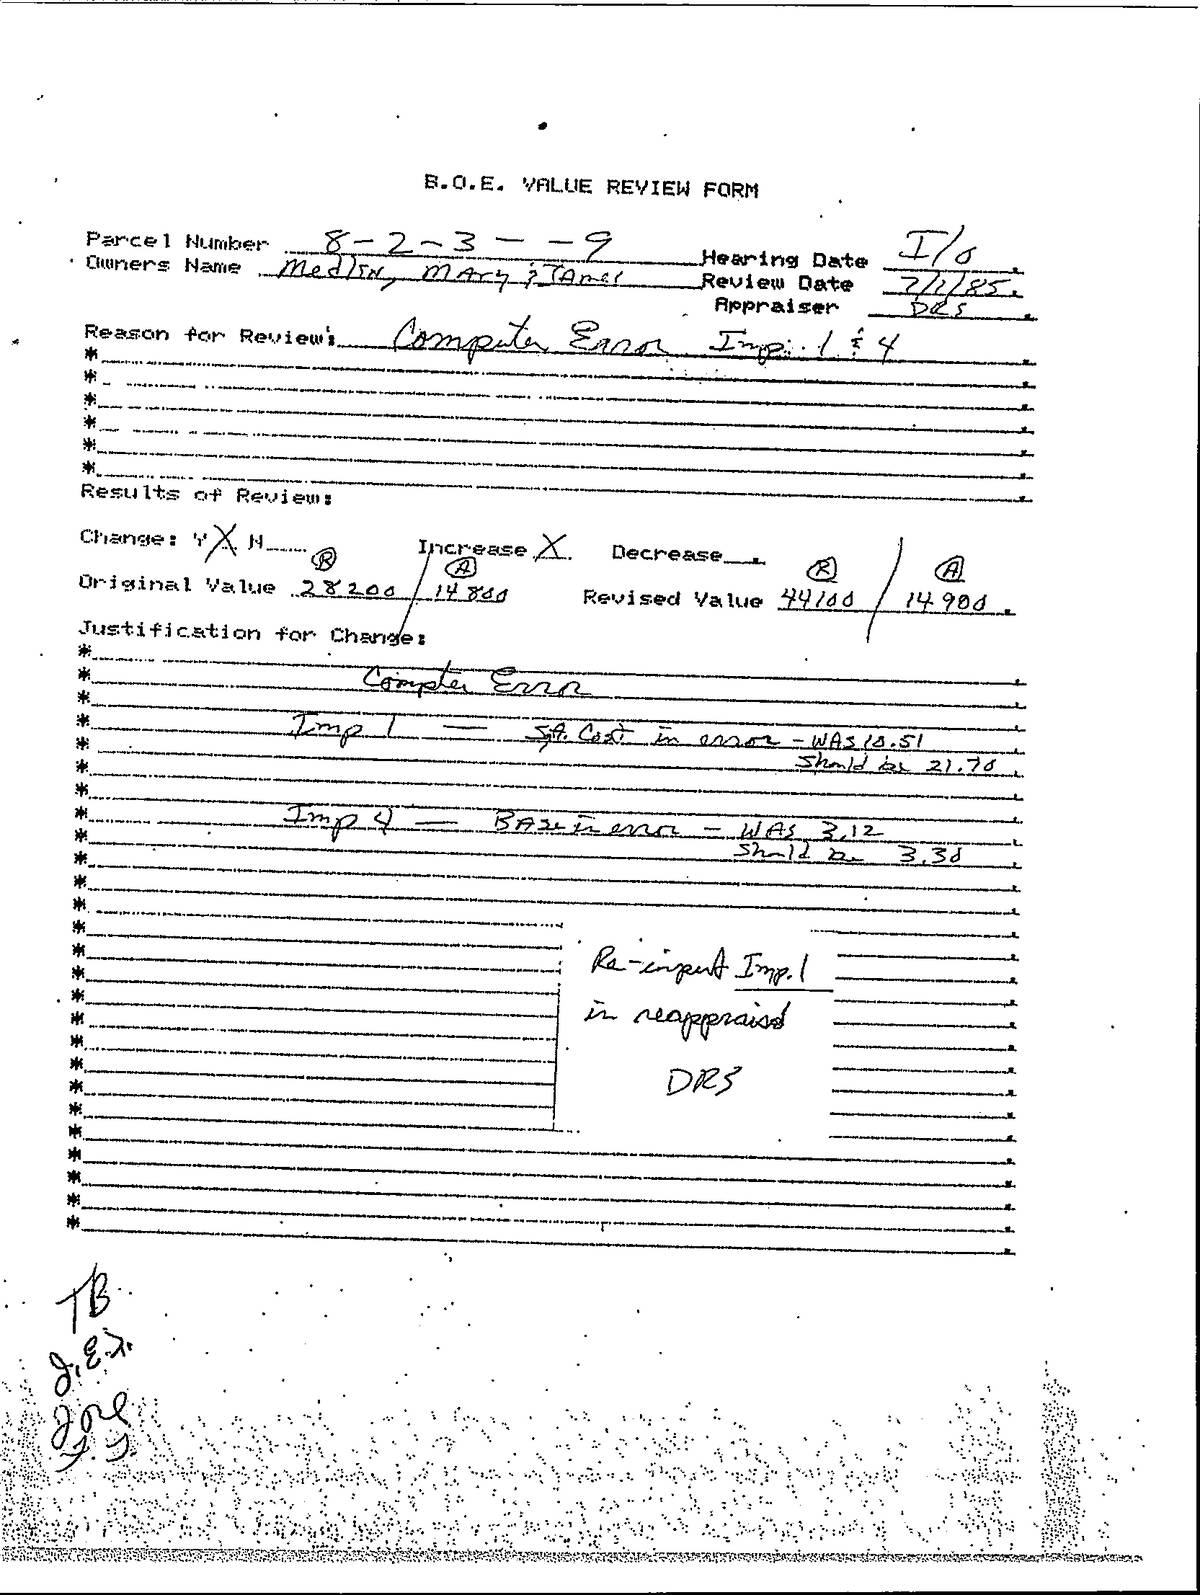 B.O.E. VALUE REVIEW FORM
Parcel Number 8-2-3- -9
Hearing Date I/O
Owners Name Medlin, Mary & James
Review Date 7/1/85
Appraiser DRS
Reason for Review: Computer Error Imp. 1 & 4
*
*
*
*
*
*
Results of Review:
Change: Y X N
Increase X Decrease
R A R A
Original Value 28200 / 14800 Revised Value 44100 / 14900
Justification for Change:
*
* Compter Error
*
* Imp 1 — Sq.ft. Cost in error - WAS 10.51
* Should be 21.70
*
*
* Imp 4 — BASE in error - WAS 3.12
* Should be 3.30
*
*
*
* Re-input Imp. 1
*
* in reappraisd
*
*
* DRS
*
*
*
*
*
*
TB